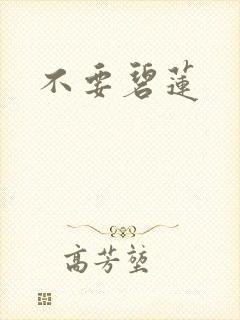 不要碧蓮
高芳